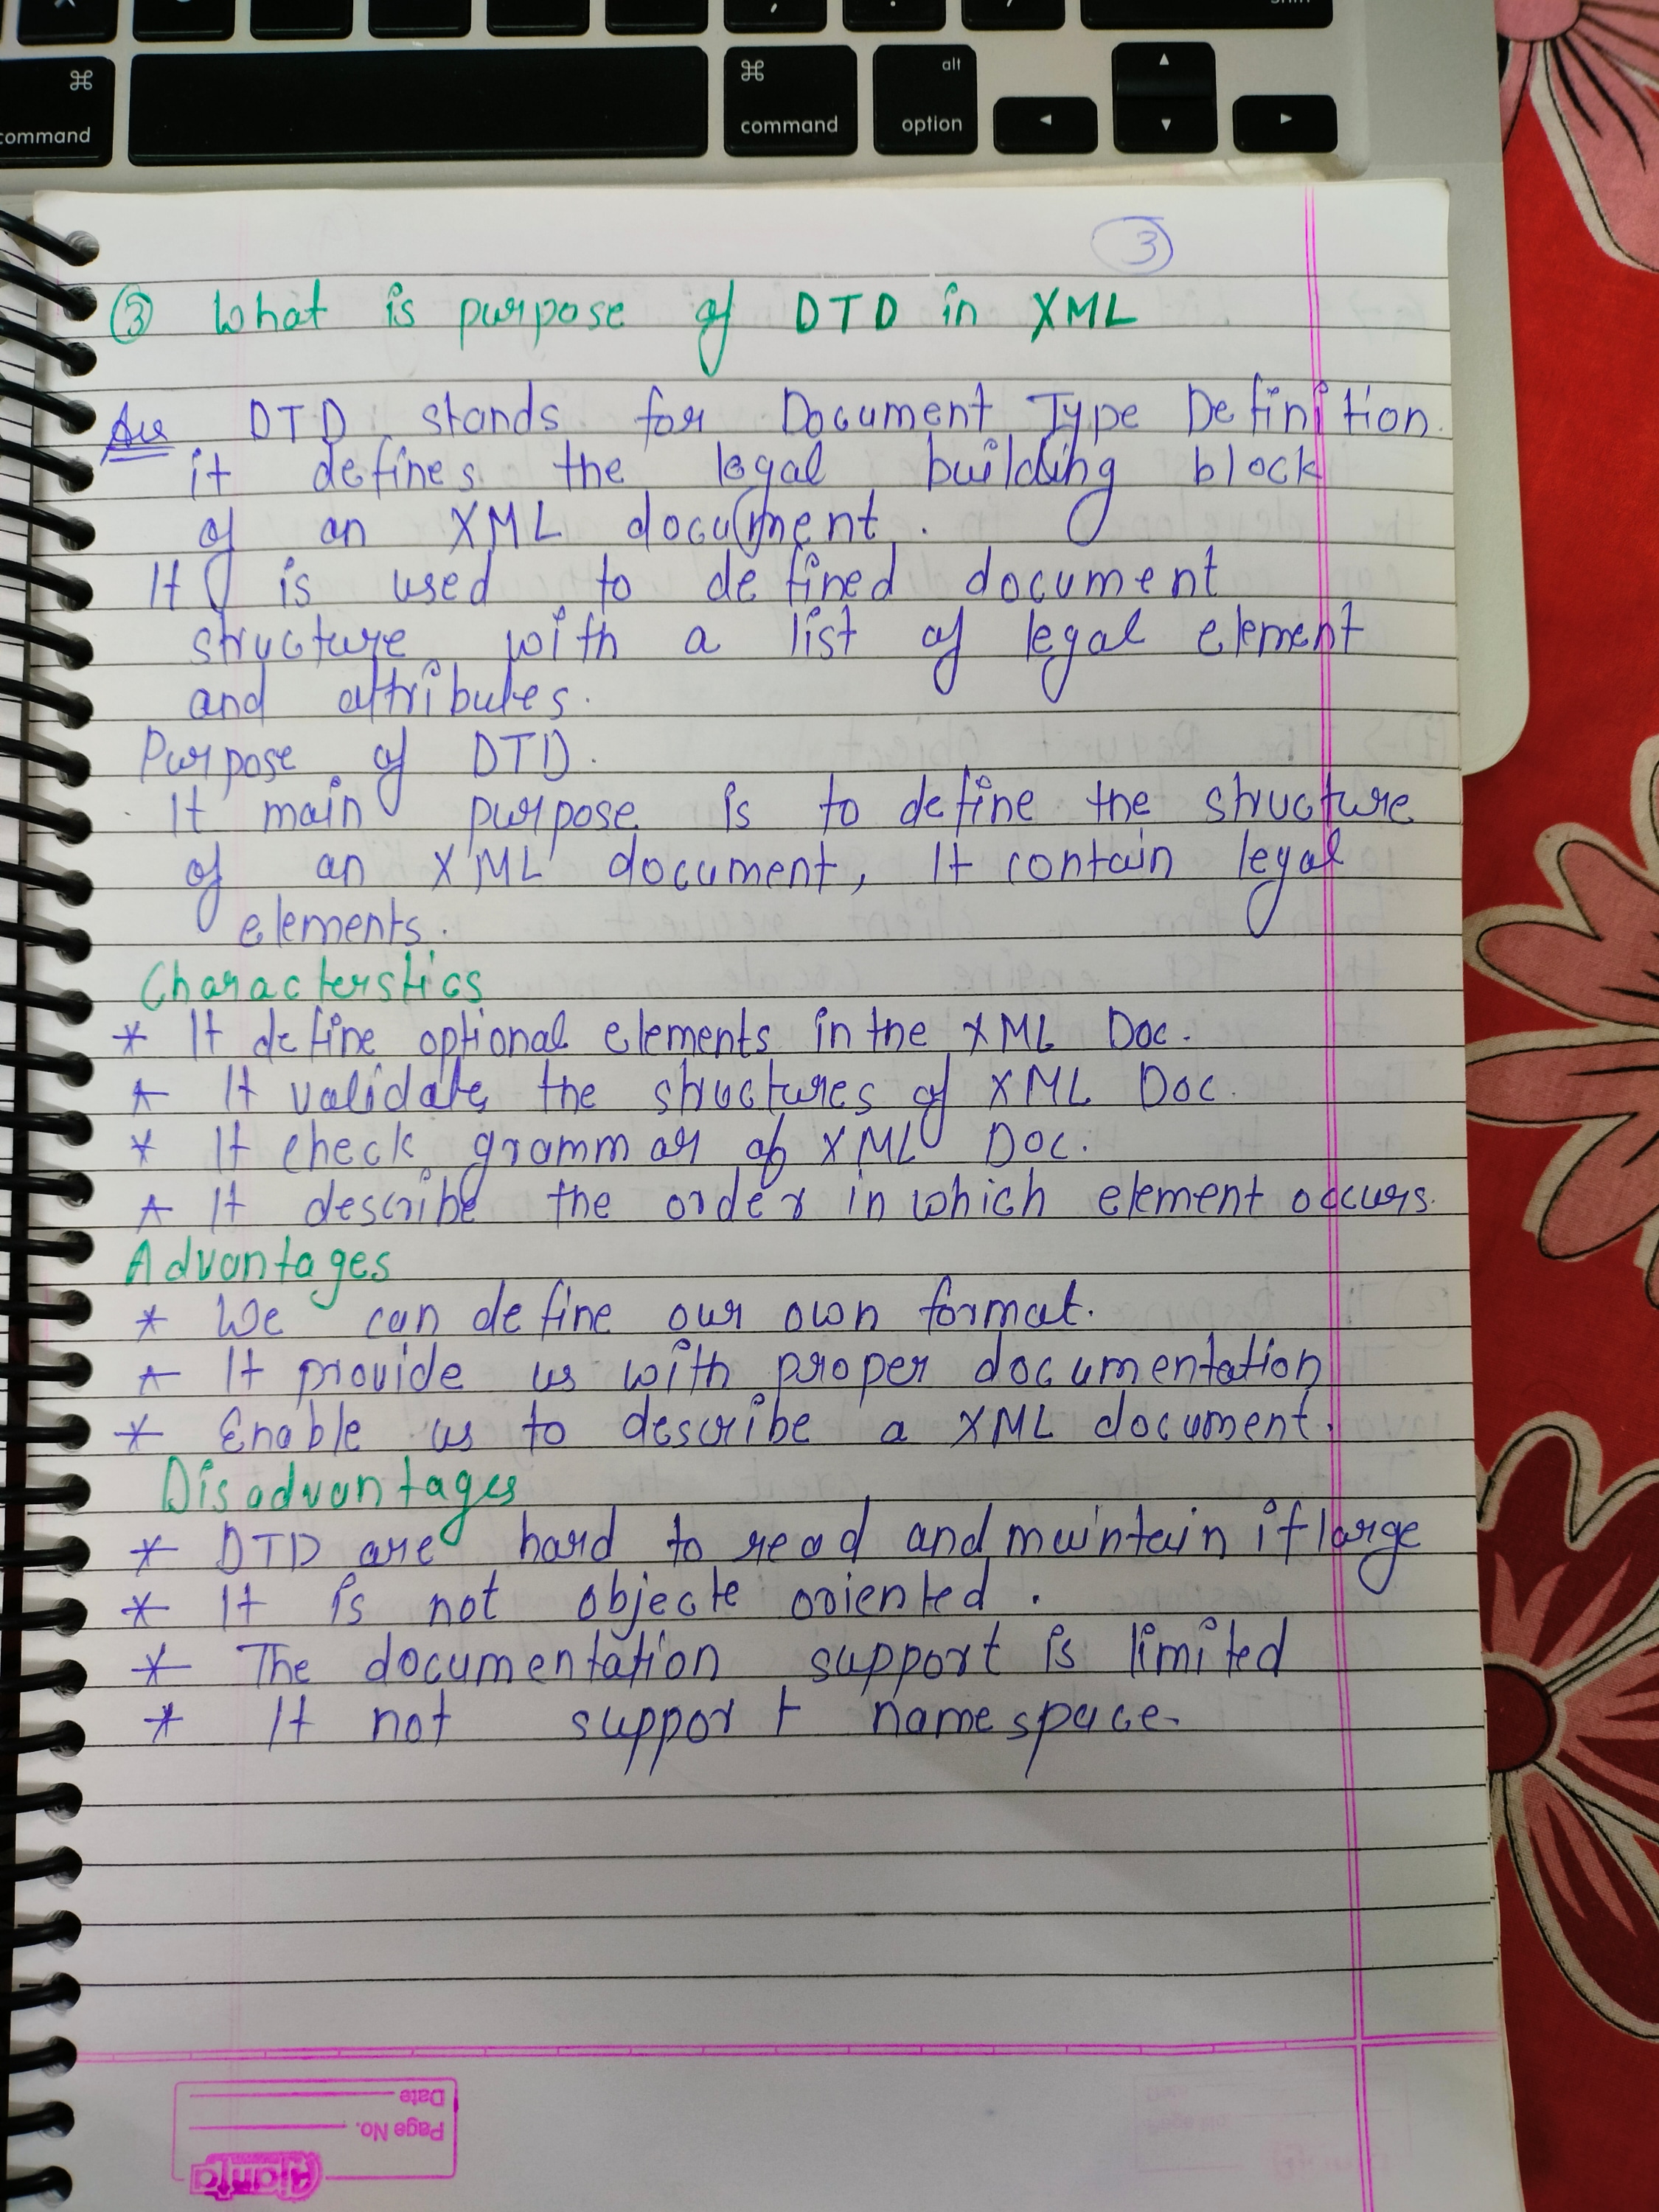 command
⌘
⌘
command
alt
option
3
③ What is purpose of DTD in XML
Ans DTD stands for Document Type Definition.
it defines the legal building block
of an XML document.
It is used to defined document
structure with a list of legal element
and attributes.
Purpose of DTD.
It main purpose is to define the structure
of an XML document, It contain legal
elements.
Characterstics
* It define optional elements in the XML Doc.
* It validate the structures of XML Doc.
* It check grammar of XML Doc.
* It describe the order in which element occurs.
Advantages
* We can define our own format.
* It provide us with proper documentation
* Enable us to describe a XML document.
Disadvantages
* DTD are hard to read and maintain if large
* It is not objecte oriented.
* The documentation support is limited
* It not support namespace.
Date
Page No.
Ajanta